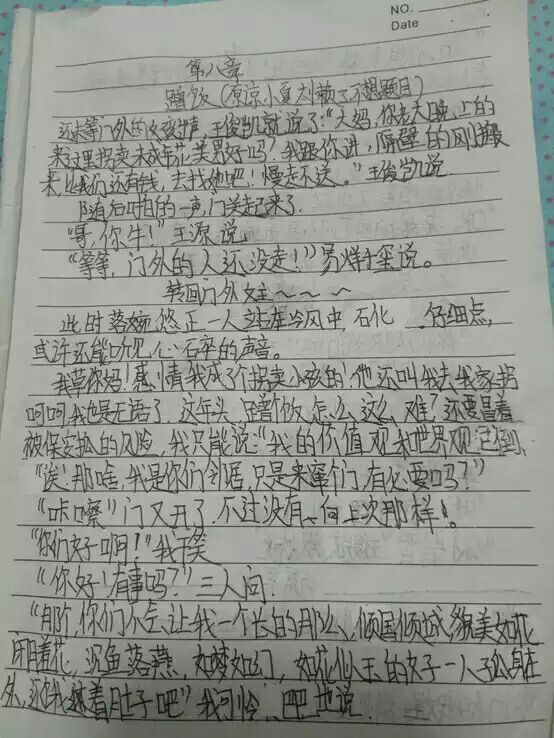 NO.
Date
第八章
蹭饭(原谅小夏太懒了不想题目)
还没等门外的女孩讲,王俊凯就说了:"大妈,你老大晚上的
来这里拐卖未成年花美男好吗?我跟你讲,隔壁的刚搬
来比我们还有钱,去找他吧!慢走不送。"王俊凯说
随后啪的一声,门关起来了.
"哥,你牛!"王源说.
"等等,门外的人还没走!")易烊千玺说。
转回门外女主~~~
此时落婉悠正一人站在冷风中,石化...仔细点,
或许还能听见心碎的声音。
我草你妈!感情我成了个拐卖小孩的!他还叫我去我家拐
呵呵我也是无语了.这年头,蹭个饭怎么这么难?还要冒着
被保安抓的风险,我只能说:"我的价值观和世界观已倒.
"诶!那啥,我是你们邻居,只是来窜个门,有必要吗?"
"咔嚓"门又开了.不过没有...向上次那样!。
"你们好啊!"我干笑
"你好!有事吗?"三人问.
"那个,你们不会让我一个长的那么,倾国倾城,貌美如花
闭月羞花,沉鱼落燕,如梦如幻,如花似玉的女子一人孤身在
外,还饿着肚子吧"我可怜...巴巴地说.